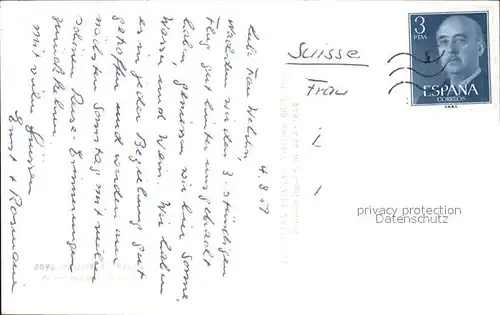 4.8.59
Liebe Frau
Nachdem wir den 3-stündigen
Flug gut hinter uns gebracht
haben, geniessen wir hier Sonne,
Wasser und Wein. Wir haben
es in jeder Beziehung gut
getroffen und werden am
nächsten Sonntag mit vielen
schönen Reise-Erinnerungen
zurückkehren.
Mit vielen Grüssen
Ernst + Rosmarie
Suisse
Frau
3
PTAS
ESPAÑA
CORREOS
privacy protection
Datenschutz